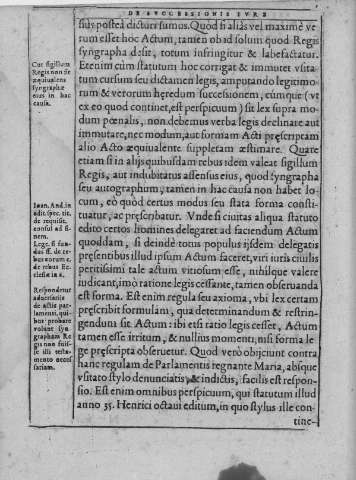 DE SVCCESSIONIS IVRE
sius postea dicturi sumus. Quòd si aliàs vel maximè ve
rum esset hoc Actum, tamen ob id solum quod Regis
syngrapha desit, totum infringitur & labefactatur.
Etenim cùm statutum hoc corrigat & immutet vsita-
tum cursum seu dictamen legis, amputando legitimo-
rum & verorum heredum successionem, cúmque (vt
ex eo quod continet, est perspicuum) sit lex supra mo-
dum pœnalis, non debemus verba legis declinare aut
immutare, nec modum, aut formam Acti præscriptam
alio Acto æquiualente suppletam æstimare. Quare
etiam si in alijs quibusdam rebus idem valeat sigillum
Regis, aut indubitatus assensus eius, quod syngrapha
seu autographum, tamen in hac causa non habet lo-
cum, eò quòd certus modus seu stata forma consti-
tuatur, ac præscribatur. Vnde si ciuitas aliqua statuto
edito certos homines delegaret ad faciendum Actum
quoddam, si deinde totus populus ijsdem delegatis
præsentibus illud ipsum Actum faceret, viri iuris ciuilis
peritissimi tale actum vitiosum esse, nihilque valere
iudicant, imò ratione legis cessante, tamen obseruanda
est forma. Est enim regula seu axioma, vbi lex certam
præscribit formulam, qua determinandum & restrin-
gendum sit Actum: ibi etsi ratio legis cesset, Actum
tamen esse irritum, & nullius momenti, nisi forma le
ge præscripta obseruetur. Quod verò obijciunt contra
hanc regulam de Parlamentis regnante Maria, absque
vsitato stylo denunciatis, & indictis, facilis est respon-
sio. Est enim omnibus perspicuum, quòd statutum illud
anno 35. Henrici octaui editum, in quo stylus ille con-
tine-
Cur sigillum
Regis non sit
æquiualens
syngraphæ
eius in hac
causa.
Ioan. And. in
addit. spec. tit.
de requisit.
consul. ad fi-
nem.
Lege. si fun-
dus ff. de re-
bus eorum c.
de rebus Ec-
clesiæ in 6.
Respondetur
aduersarijs
de actis par-
lamenti, qui-
bus probare
volunt syn-
grapham Re
gis non fuis-
se illi testa-
mento neces
sariam.